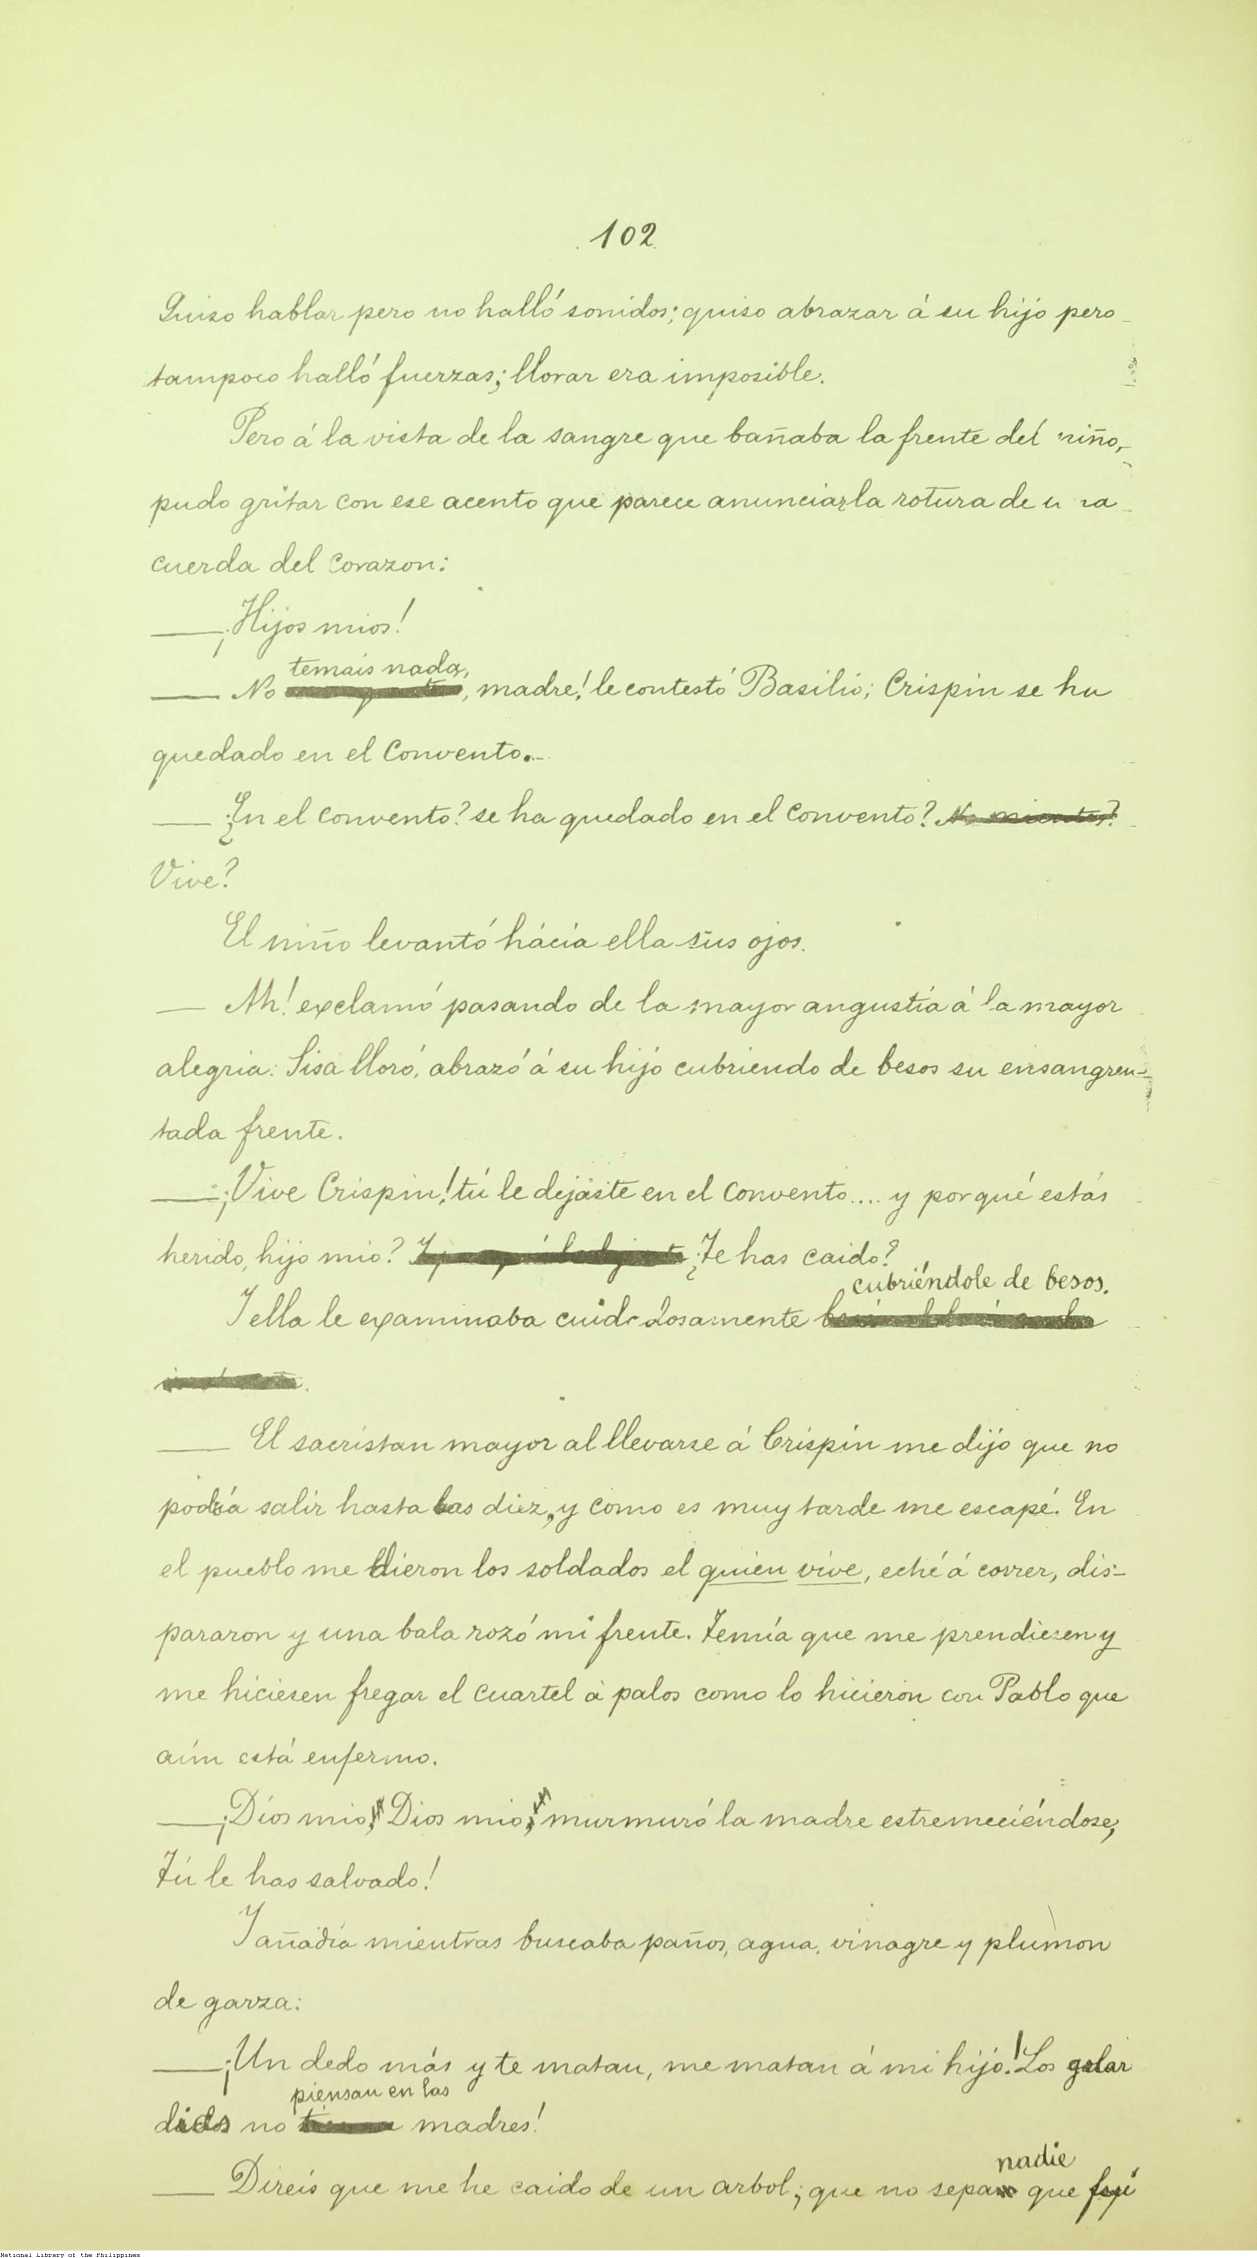 102
Quiso hablar pero no halló sonidos; quiso abrazar á su hijo pero
tampoco halló fuerzas; llorar era imposible.
Pero á la vista de la sangre que bañaba la frente del niño,
pudo gritar con ese acento que parece anunciar la rotura de una
cuerda del corazon:
— ¡Hijos mios!
temais nada,
— No, madre! le contestó Basilio; Crispin se ha
quedado en el convento...
— ¿En el convento? se ha quedado en el convento? No mientes?
Vive?
El niño levantó hácia ella sus ojos.
— Ah! exclamó pasando de la mayor angustia á la mayor
alegria. Sisa lloró, abrazó á su hijo cubriendo de besos su ensangren-
tada frente.
— ¡Vive Crispin! tú le dejaste en el convento.... y por qué estás
herido, hijo mio? ¿Te has caido?
cubriéndole de besos.
Y ella le examinaba cuidadosamente
— El sacristan mayor al llevarse á Crispin me dijo que no
podría salir hasta las diez, y como es muy tarde me escapé. En
el pueblo me dieron los soldados el quien vive, eché á correr, dis-
pararon y una bala rozó mi frente. Temía que me prendiesen y
me hiciesen fregar el cuartel á palos como lo hicieron con Pablo que
aún está enfermo.
— ¡Dios mio, Dios mio! murmuró la madre estremeciéndose,
Tú le has salvado!
Y añadía mientras buscaba paños, agua, vinagre y plumon
de garza:
— ¡Un dedo más y te matan, me matan á mi hijo! Los
piensan en las
no madres!
nadie
— Direis que me he caido de un arbol; que no sepa que fuí